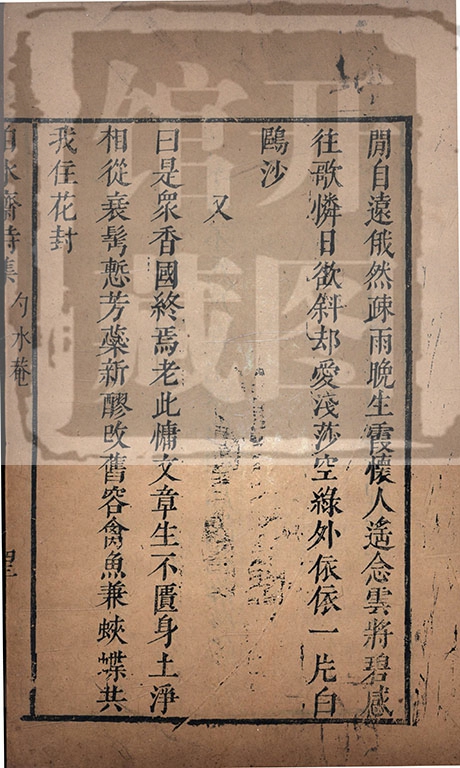 閒自遠俄然疎雨晚生霞懷人遙念雲將碧感
往歌憐日欲斜却愛淺莎空綠外依依一片白
鷗沙
又
曰是衆香國終焉老此慵文章生不匱身土淨
相從衰髩慙芳蘂新醪改舊容禽魚兼蛺蝶共
我住花封
勺水菴
开图
馆藏